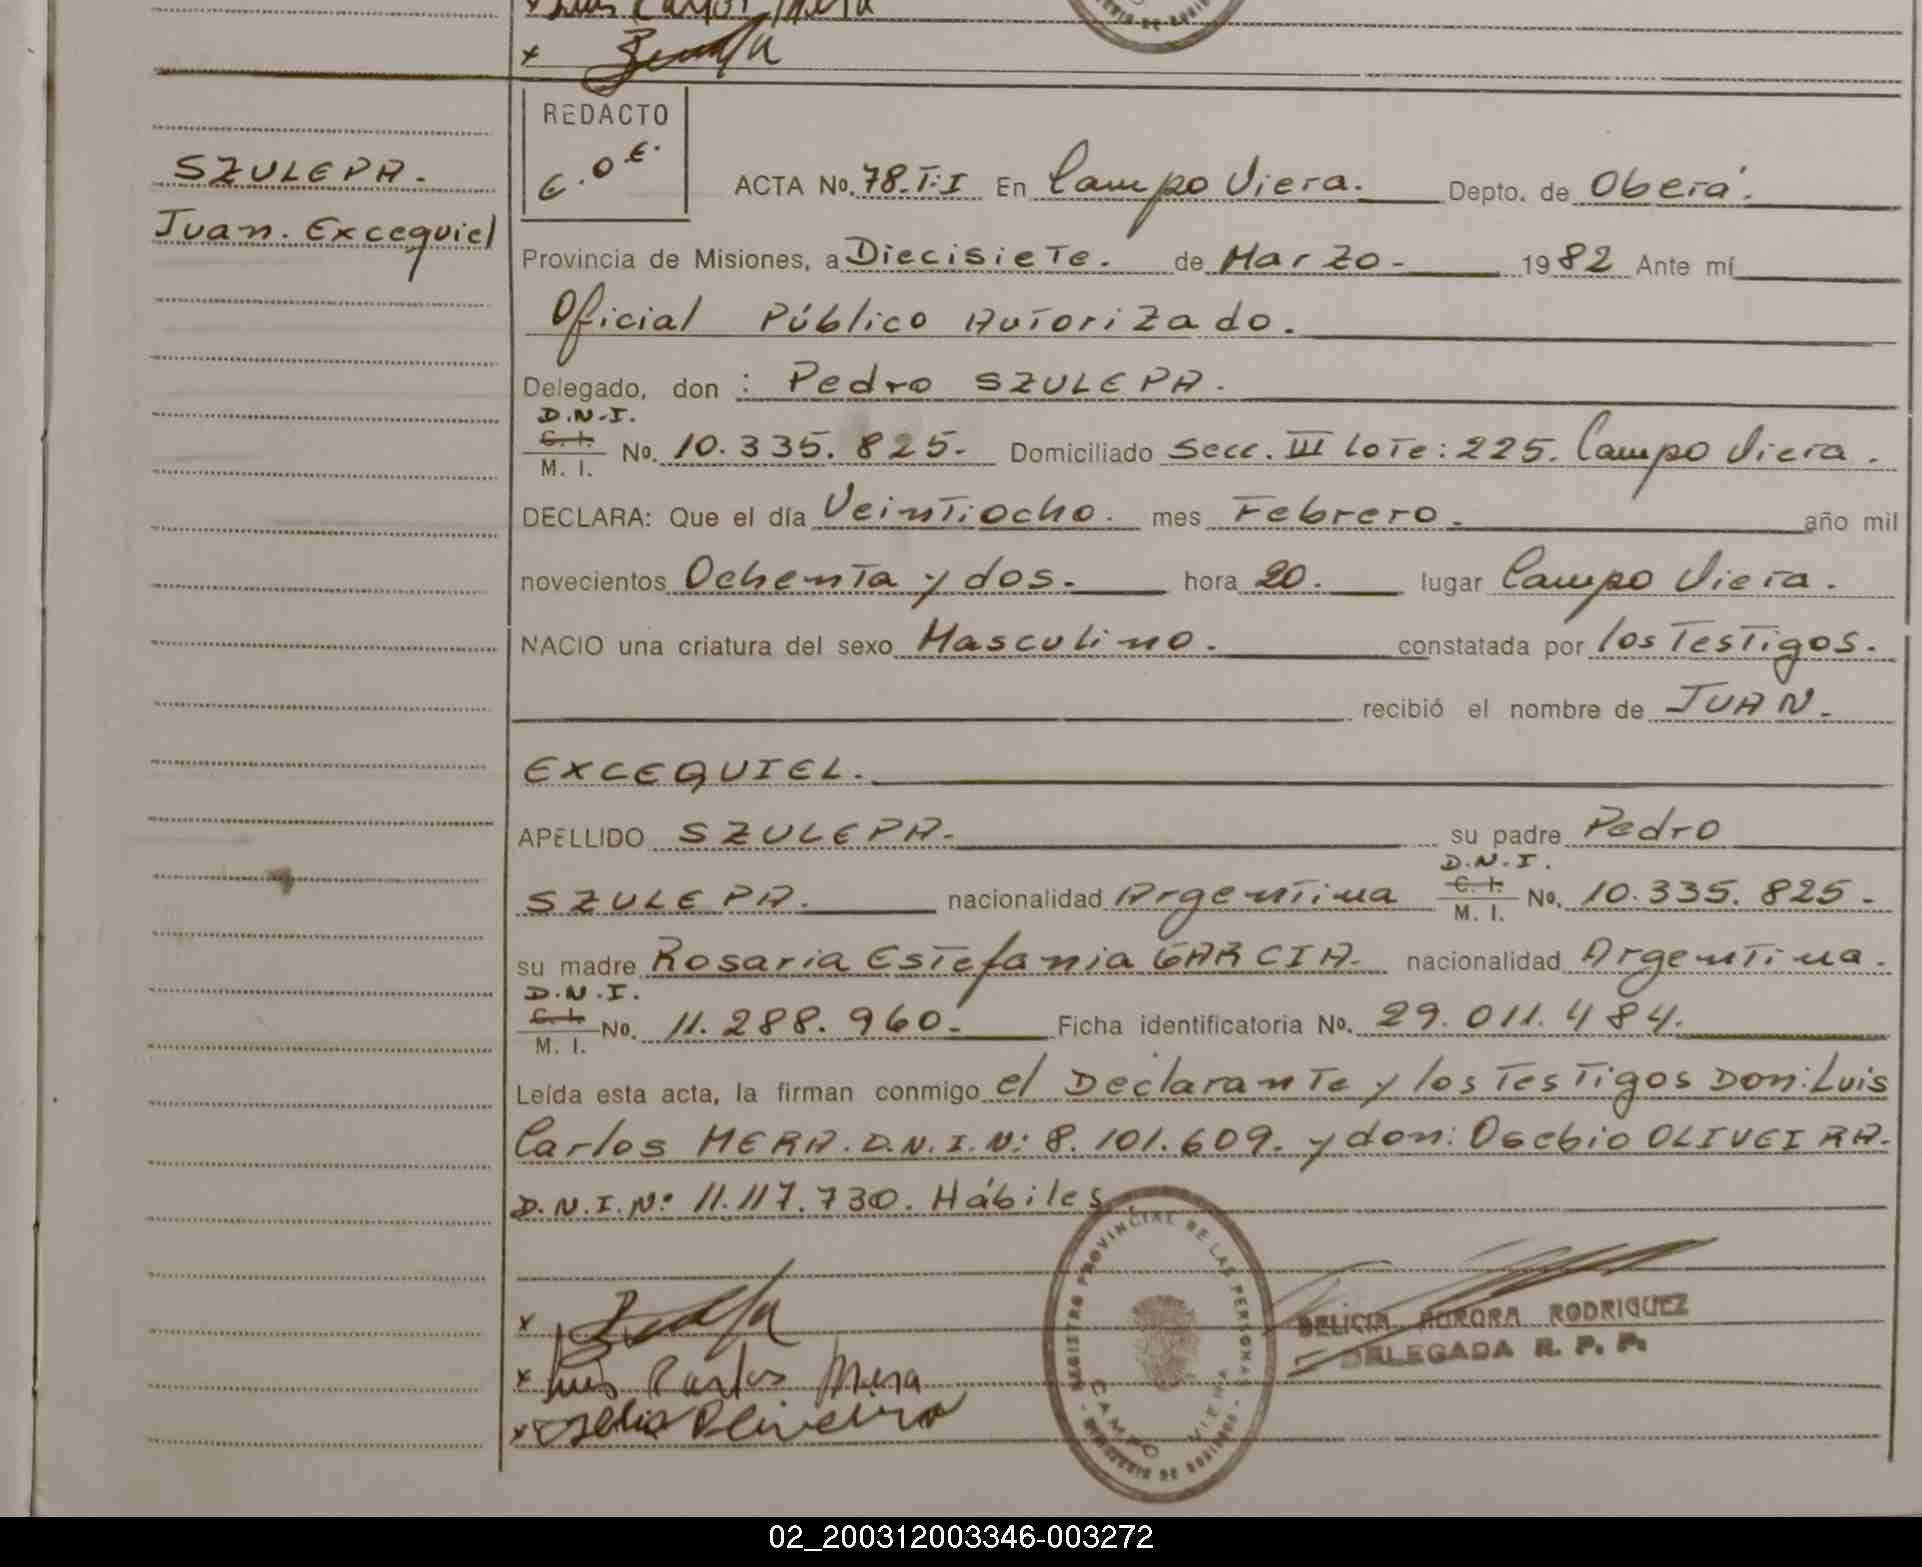 Luis Carlos Mera
x
REDACTO
E.O.E.
SZULEPA.
Juan. Excequiel
ACTA No. 78.T:I En Campo Viera. Depto. de Oberá.
Provincia de Misiones, a Diecisiete. de Marzo - 1982 Ante mí
Oficial Público Autorizado.
Delegado, don : Pedro SZULEPA.
D.N.I.
C. I. No. 10.335.825. Domiciliado Secc. III Lote: 225. Campo Viera.
M. I.
DECLARA: Que el día Veintiocho. mes Febrero. año mil
novecientos Ochenta y dos. hora 20. lugar Campo Viera.
NACIO una criatura del sexo Masculino. constatada por los Testigos.
recibió el nombre de JUAN.
EXCEQUIEL.
APELLIDO SZULEPA. su padre Pedro
D.N.I.
SZULEPA. nacionalidad Argentina C. I. No. 10.335.825.
M. I.
su madre Rosaria Estefania GARCIA. nacionalidad Argentina.
D.N.I.
C. I. No. 11.288.960. Ficha identificatoria No. 29.011.484.
M. I.
Leída esta acta, la firman conmigo el Declarante y los Testigos Don: Luis
Carlos MERA. D.N.I.N: 8.101.609. y don: Osebio OLIVEIRA.
D.N.I.Nº 11.117.730. Hábiles
REGISTRO PROVINCIAL DE LAS PERSONAS
CAMPO VIERA
MINISTERIO DE GOBIERNO
x
DELICIA AURORA RODRIGUEZ
DELEGADA R. P. P.
x Luis Carlos Mera
x Osebio Oliveira
02_200312003346-003272